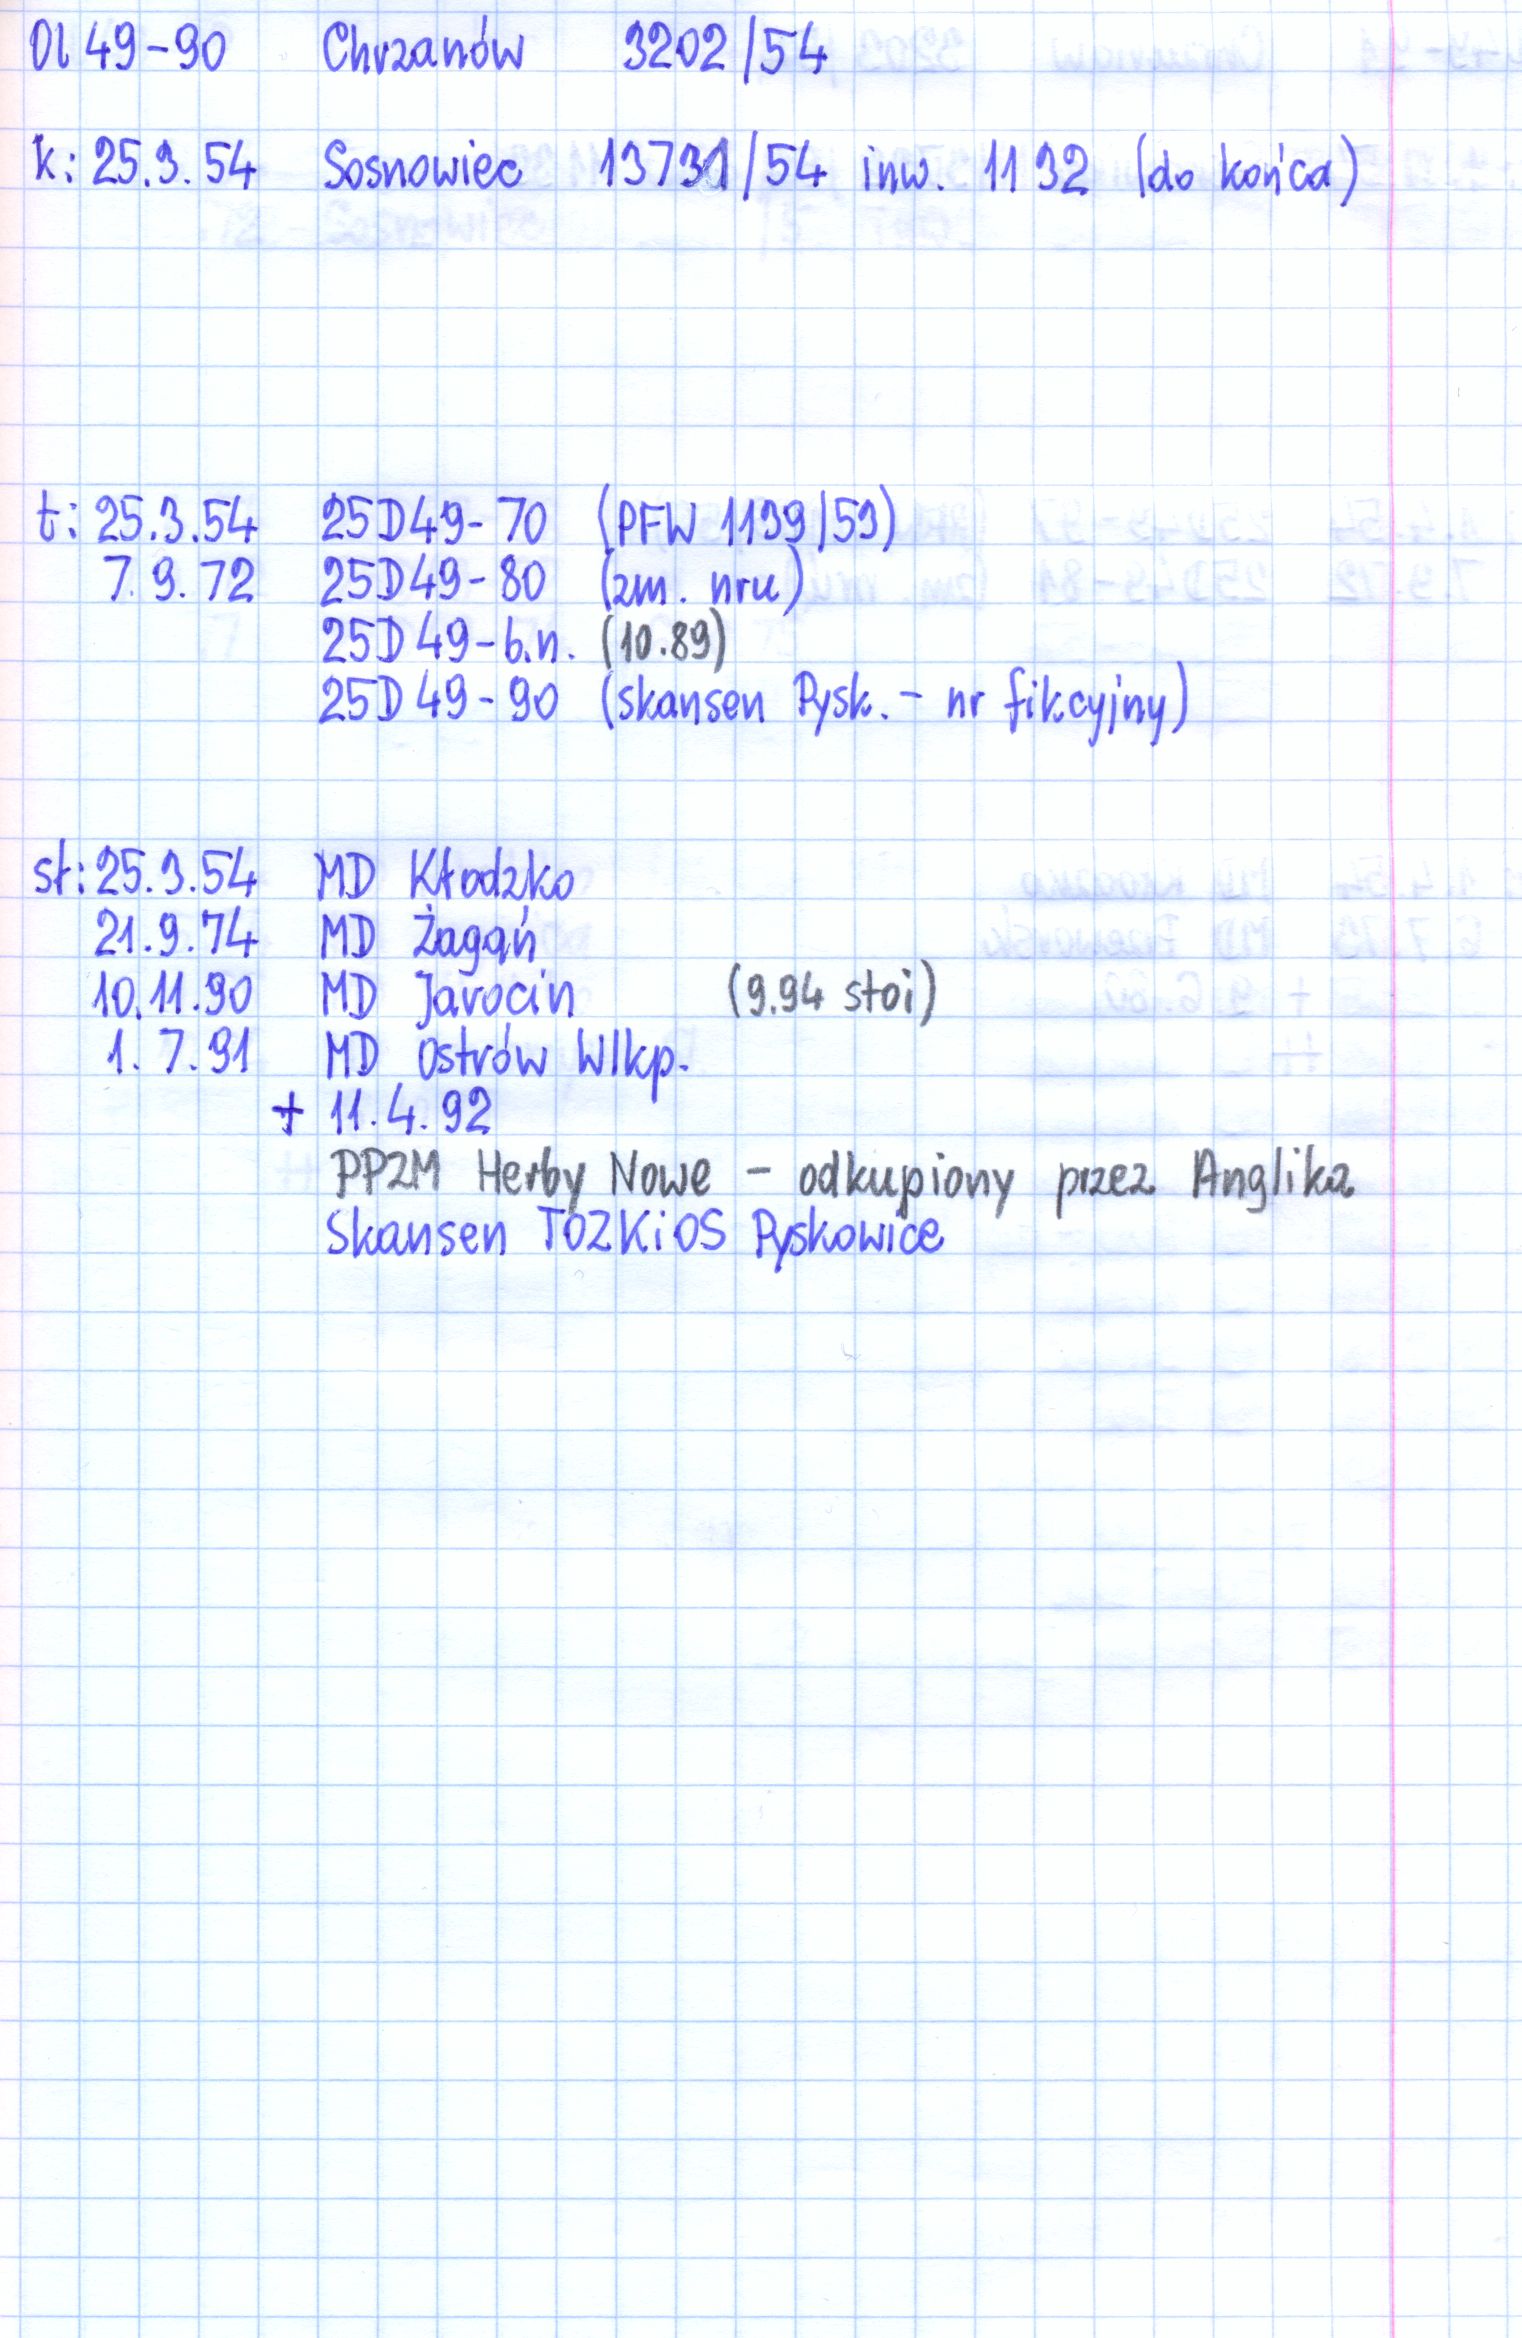 Ol 49-90 Chrzanów 3202/54
k: 25.3.54 Sosnowiec 13731/54 inw. 1192 (do końca)
t: 25.3.54 25D49-70 (PFW 1139/53)
7.9.72 25D49-80 (zm. nru)
25D49-b.n. (10.89)
25D49-90 (skansen Pysk. - nr fikcyjny)
st: 25.3.54 MD Kłodzko
21.9.74 MD Żagań
10.11.90 MD Jarocin (9.94 stoi)
1.7.91 MD Ostrów Wlkp.
+ 11.4.92
PPZM Herby Nowe - odkupiony przez Anglika
Skansen TOZKiOS Pyskowice